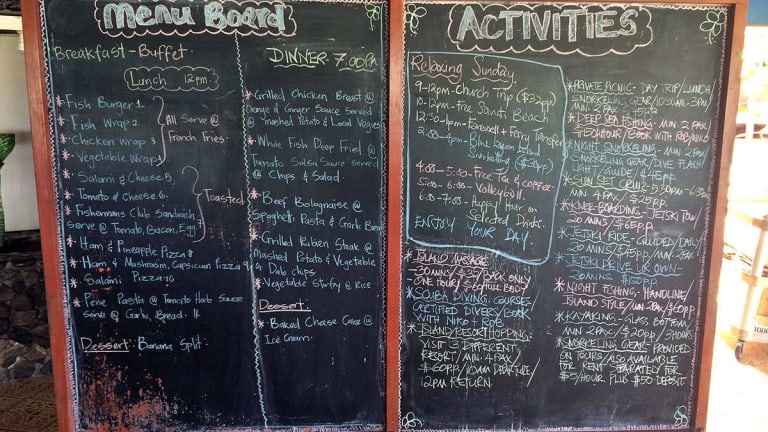 Menu Board
Breakfast - Buffet.
Lunch 12pm
* Fish Burger 1
* Fish Wrap 2
* Chicken Wrap 3
* Vegetable Wrap
All Serve @
French Fries
* Salami & Cheese 5
* Tomato & Cheese 6
* Fishermans Club Sandwich
Serve @ Tomato, Bacon, Egg 7
Toasted
* Ham & Pineapple Pizza 8
* Ham & Mushroom, Capsicum Pizza 9
* Salami Pizza 10
* Pene Pasta @ Tomato Herb Sauce
Serve @ Garlic Bread. 11
Dessert: Banana Split.
DINNER - 7.00PM
* Grilled Chicken Breast @
Orange & Ginger Sauce served
@ Mashed Potato & Local Veggies
* Whole Fish Deep Fried @
Tomato Salsa Sauce served
@ Chips & Salad.
* Beef Bolognaise @
Spaghetti Pasta & Garlic Bread
* Grilled Steak @
Mashed Potato & Vegetable
& chips
* Vegetable Stirfry @ Rice
Dessert:
* Baked Cheese Cake @
Ice Cream.
ACTIVITIES
Relaxing Sunday
9-12pm - Church Trip ($32pp)
10-12pm - Free Beach
12:30-1pm - Farewell + Ferry Transfer
2:00-4pm - Blue Lagoon
Snorkelling ($30pp)
4:00 - 5:00 - Free Tea & coffee.
5:00 - 6:00 - Volleyball.
6:00-7:00 - Happy Hour on
Selected Drinks.
ENJOY YOUR DAY
* ISLAND MASSAGE
- 30 MINS / $35 / BACK ONLY
ONE HOUR / FULL BODY
* SCUBA DIVING: COURSES/
CERTIFIED DIVER / BOOK
WITH NIKO + BOB
* ISLAND/RESORT HOPPING.
VISIT 3 DIFFERENT
RESORT / MIN. 4 PAX /
$60PP / 10AM DEPARTURE /
12PM RETURN.
* PRIVATE PICNIC - DAY TRIP/LUNCH
SNORKELING GEAR/10:30AM-3PM/
MIN. 2 PAX
* DEEP SEA FISHING - MIN. 2 PAX
HOUR / BOOK WITH BOB/NIKO
* NIGHT SNORKELING - MIN. 2 PAX
SNORKELING GEAR / DIVE FLASH
LIGHT / GUIDE / $45PP
* SUNSET CRUISE - 5:30PM - 6:30PM
MIN. 4 PAX / $25PP.
* KNEE-BOARDING - JETSKI TOW/
20 MINS / $65PP.
* JETSKI RIDE - GUIDED/DAILY
20 MINS / MIN. 2 PAX
* JETSKI DRIVE UR OWN -
30 MINS
* NIGHT FISHING - HANDLINE/
ISLAND STYLE / MIN. 2 PAX / $60PP
* KAYAKING - GLASS BOTTOM
MIN. 2 PAX / $20PP / 3 HOURS
* SNORKELING GEARS PROVIDED
ON TOURS / ALSO AVAILABLE
FOR RENT SEPARATELY FOR
$5/HOUR PLUS $50 DEPOSIT